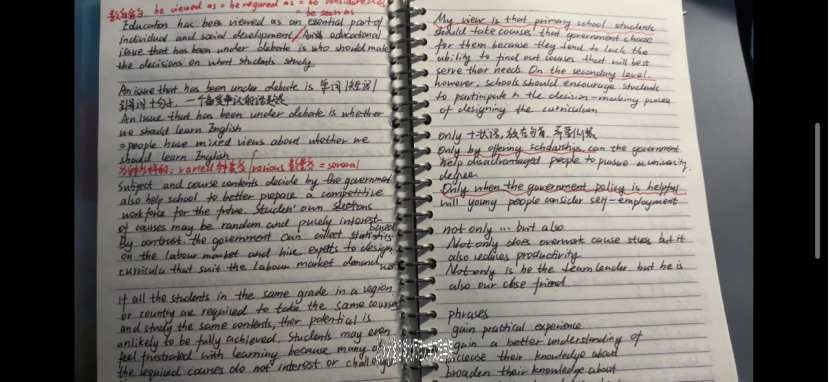 be viewed as = be regared as = be considered as
= be seen as
Education has been viewed as an essential part of
individual and social development / educational
issue that has been under debate is who should make
the decisions on what students study
An issue that has been under debate is 单词 / 短语 /
引导词十句子, 一个备受争议的话题是
An issue that has been under debate is whether
we should learn English
= people have mixed views about whether we
should learn English
varied various = several
Subject and course contents decide by the government
also help school to better prepare a competitive
workforce for the future. Studens' own
of courses may be random and purely interest-based
By contrast, the government can collect statistics
on the labour market and hire experts to design
curricula that suit the labour market demand
If all the students in the same grade in a region
or country are required to take the same courses
and study the same contents, their potential is
unlikely to be fully achieved. Students may even
feel frustrated with learning because many of
the required courses do not interest or challenge
My view is that primary school students
should take courses that government choose
for them because they tend to lack the
ability to find out courses that will best
serve their needs. On the secondary level,
however, schools should encourage students
to participate in the decision-making process
of designing the curriculum
only 十状语, 放在句首,
Only by offering scholarships, can the government
help disadvantaged people to pursue a university
degree
Only when the government policy is helpful
will young people consider self-employment
not only ... but also
Not only does overwork cause stress but it
also reduces productivity
Not only is he the team leader, but he is
also our close friend
phrases
gain practical experience
gain a better understanding of
increase their knowledge about
broaden their knowledge about